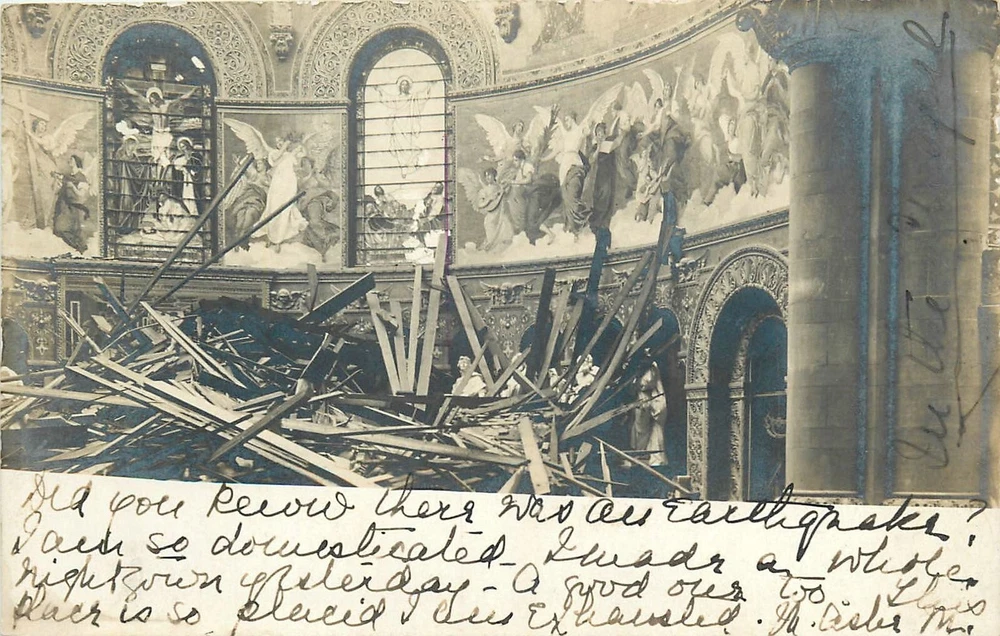 In the Chapel
Did you know there was an Earthquake?
I am so domesticated - I made a whole
nightgown yesterday - A good one too This
place is so placid I am Exhausted. M.